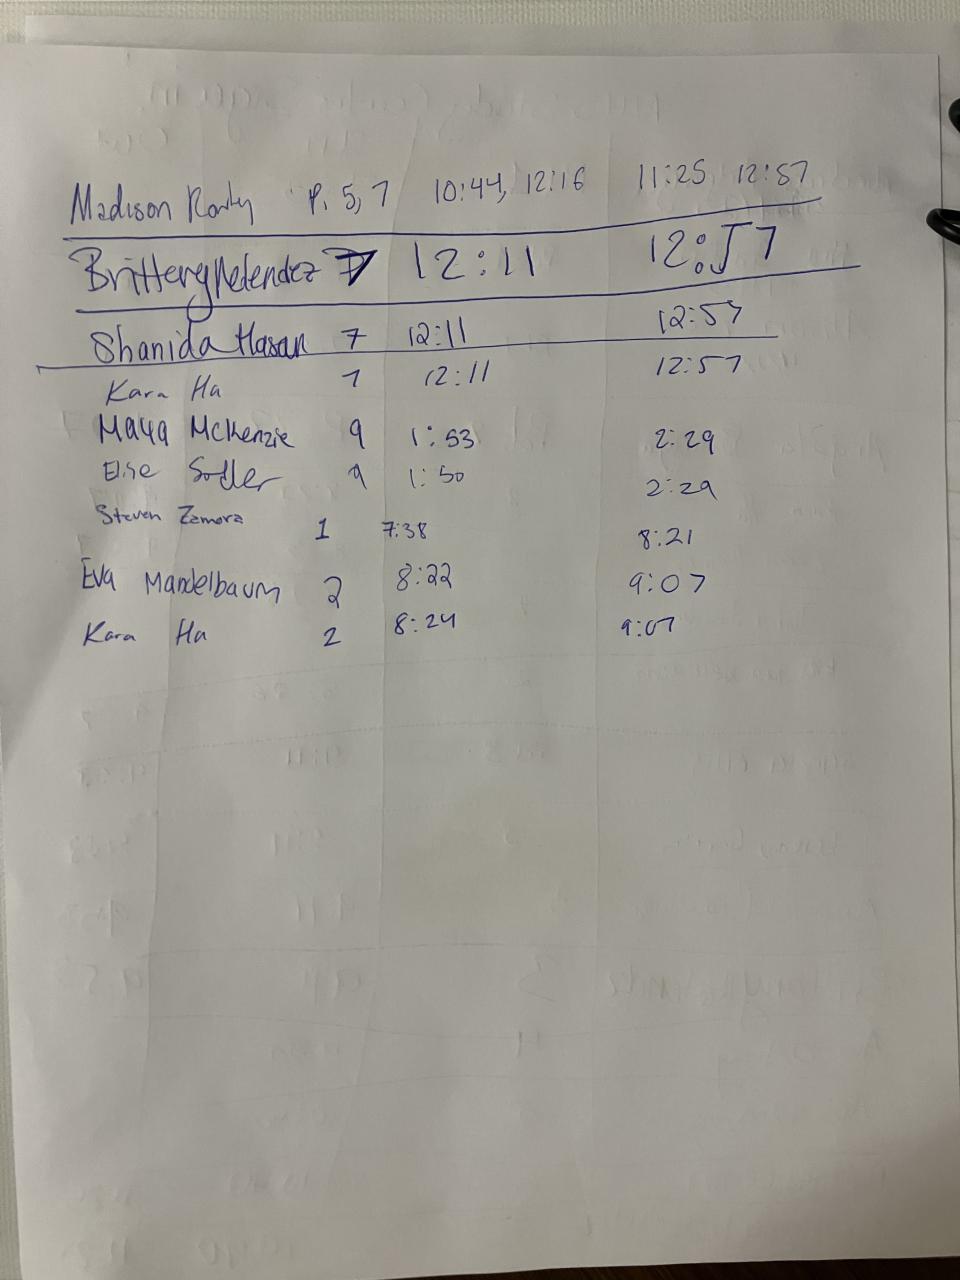 Madison P. 5, 7 10:44, 12:16 11:25 12:57
Brittany Melendez 7 12:11 12:57
Shanida Hasan 7 12:11 12:57
Kara Ha 7 12:11 12:57
Maya McKenzie 9 1:53 2:29
Elise 9 1:50 2:29
Steven Zamora 1 7:38 8:21
Eva Mandelbaum 2 8:22 9:07
Kara Ha 2 8:24 9:07